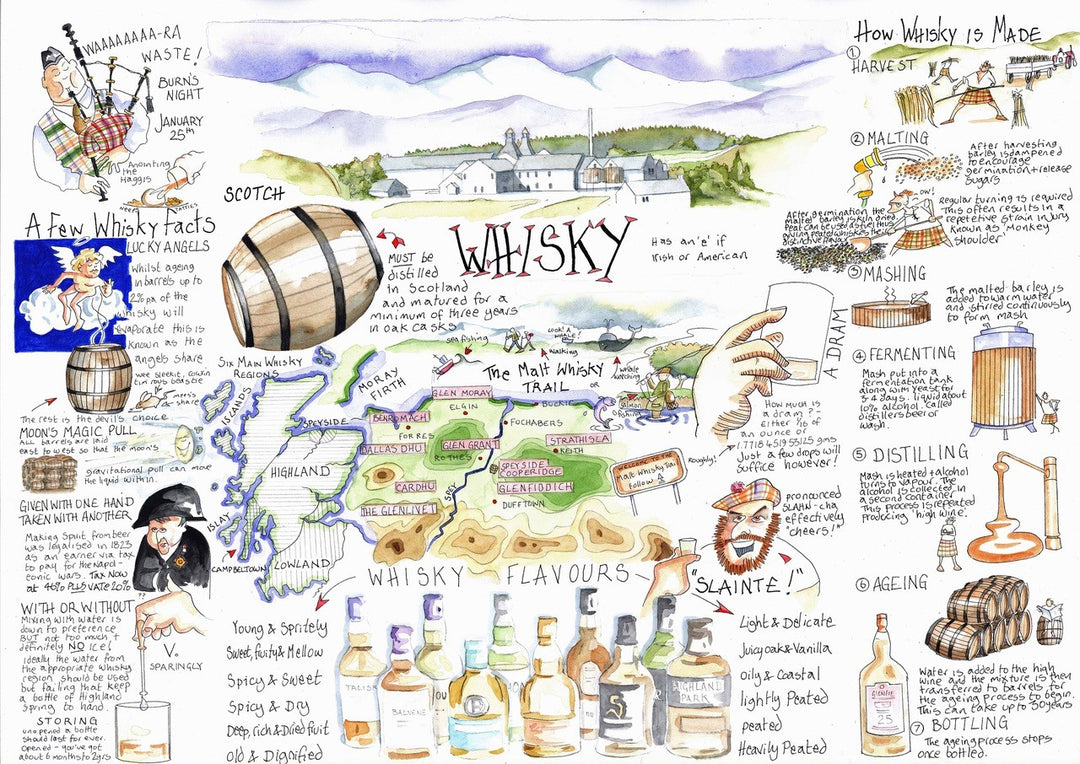 WAAAAAAA-RA
WASTE!
BURN'S
NIGHT
JANUARY
25th
Anointing
the
Haggis
A Few Whisky Facts
LUCKY ANGELS
Whilst ageing
in barrels up to
2% pa of the
whisky will
evaporate this is
known as the
angels share
wee sleekit, cowrin
tim'rous beastie
mern's
share
The rest is the devil's choice.
MOON'S MAGIC PULL
All barrels are laid
east to west so that the moon's
gravitational pull can move
the liquid within.
GIVEN WITH ONE HAND
TAKEN WITH ANOTHER
Making Spirit from beer
was legalised in 1823
as an earner via tax
to pay for the Napol-
eonic wars. Tax Now
at 46% PLUS VATE 20%
WITH OR WITHOUT
Mixing with water is
down to preference
BUT not too much &
definitely NO ice!
Ideally the water from
the appropriate whisky
region should be used
but failing that keep
a bottle of Highland
Spring to hand.
STORING
unopened a bottle
should last for ever.
Opened - you've got
about 6 months to 2yrs
??
V.
SPARINGLY
SCOTCH
MUST be
distilled
in Scotland
and matured for a
minimum of three years
in oak casks
WHISKY
Has an 'e' if
Irish or American
Six Main Whisky
Regions
ISLANDS
SPEYSIDE
HIGHLAND
ISLAY
CAMPBELTOWN
LOWLAND
MORAY
FIRTH
sea fishing
walking
LOOK! A
WHALE!
whale
watching
The Malt Whisky
TRAIL
OR
Salmon
fishing
GLEN MORAY
ELGIN
BUCKIE
BENROMACH
FORRES
FOCHABERS
DALLAS DHU
GLEN GRANT
ROTHES
STRATHISLA
KEITH
SPEYSIDE
COOPERIDGE
CARDHU
GLENFIDDICH
DUFFTOWN
THE GLENLIVET
SPEY
WELCOME TO THE
Malt Whisky Trail
Follow
A DRAM
How much is
a dram? -
Either 1/16 of
an ounce or
1.7718451955125 gms
Just a few drops will
suffice however!
Roughly!
pronounced
SLAHN-cha
effectively
"cheers!"
"SLAINTE!"
WHISKY FLAVOURS
Young & Spritely
Sweet, fruity & Mellow
Spicy & Sweet
Spicy & Dry
Deep, rich & Dried fruit
Old & Dignified
TALISK
BALVENIE
B
HIGHLAND
PARK
Light & Delicate
Juicy oak & Vanilla
oily & Coastal
lightly Peated
peated
Heavily Peated
How Whisky is Made
① HARVEST
② MALTING
After harvesting
barley is dampened
to encourage
germination & release
Sugars
OW!
Regular turning is required
This often results in a
repetetive strain injury
known as 'monkey
shoulder'
After germination the
malted barley is kiln dried
Peat can be used as fuel thus
giving peated whiskies their
distinctive flavour
③ MASHING
The malted barley is
added to warm water
and stirred continuously
to form mash
④ FERMENTING
Mash put into a
fermentation tank
along with yeast for
3-4 days. liquid about
10% alcohol. Called
distillers beer or
wash.
⑤ DISTILLING
Mash is heated & alcohol
turns to vapour. The
alcohol is collected in
a second container
This process is repeated
producing 'high wine.'
⑥ AGEING
Water is added to the high
wine and the mixture is then
transferred to barrels for
the ageing process to begin.
This can take up to 30 years
25
⑦ BOTTLING
The ageing process stops
once bottled.